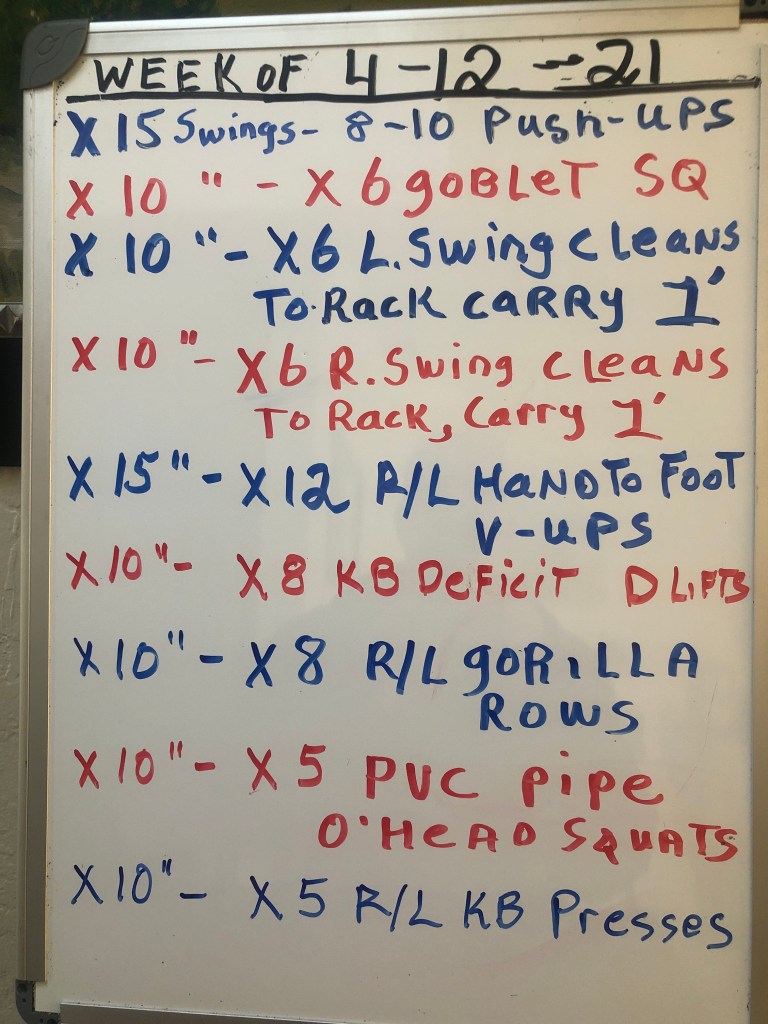 WEEK OF 4-12-21
X 15 Swings - 8-10 Push-UPS
X 10 " - X 6 goBLeT SQ
X 10 " - X6 L. Swing cLeaNS
To Rack caRRy 1'
X 10 " - X6 R. Swing cLeaNS
To Rack, Carry 1'
X 15 " - X12 R/L HaND To FooT
V-uPS
X 10 " - X8 KB DeficiT DLiFTS
X 10 " - X8 R/L goRiLLA
ROWS
X 10 " - X5 PVC pipe
O'HeAD SQuATS
X 10 " - X5 R/L KB Presses